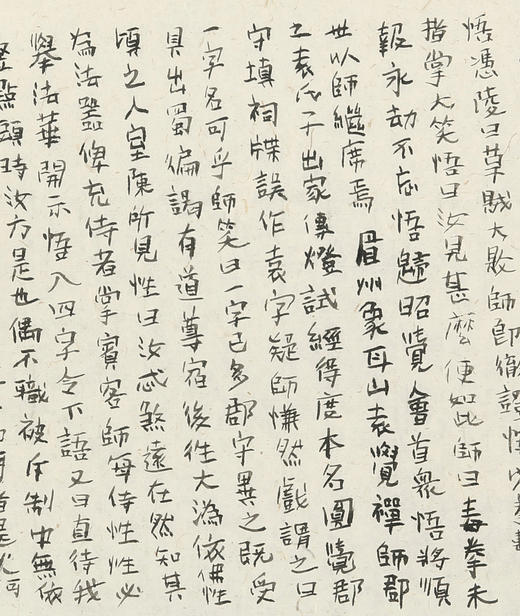 悟憑陵曰草賊大敗師即徹證悟以
指掌大笑悟曰汝見甚麼便如此師曰毒拳未
報永劫不忘悟歸昭覺命首衆悟將順
世以師繼席焉 眉州象耳山袁覺禪師郡
之袁氏子出家傳燈試經得度本名圓覺郡
守填祠牒誤作袁字疑師慊然戲謂之曰
一字名可乎師笑曰一字已多郡守異之既受
具出蜀徧謁有道尊宿後往大溈依佛性
頃之入室陳所見性曰汝忒煞遠在然知其
為法器俾充侍者掌賓客師每侍性性必
舉法華開示悟入四字令下語又曰直待我
竪點頭時汝方是也偶不職被斥制中無依